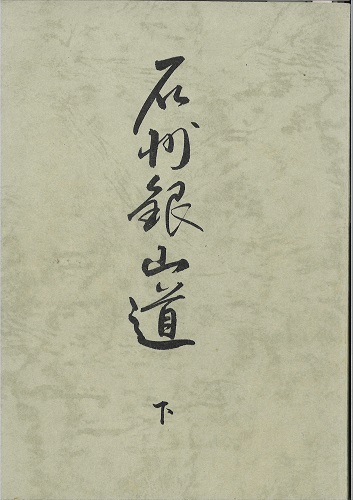 石州銀山道
下